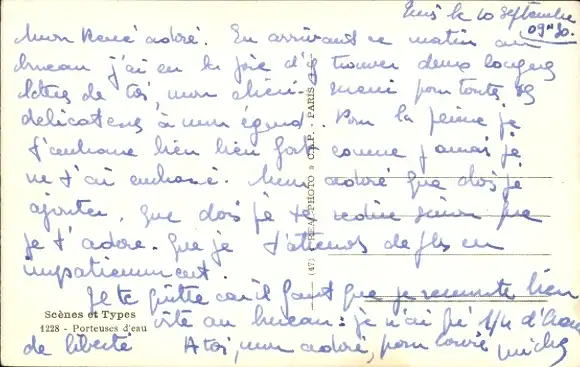 Tunis le 10 septembre
09h30.
Mon René adoré. En arrivant ce matin au
bureau j'ai eu la joie d'y trouver deux longues
lettres de toi, mon chéri. merci pour toutes tes
délicatesses à mon égard. Pour la peine je
t'embrasse bien bien fort comme jamais je
ne t'ai embrassé. Mon adoré que dois je
ajouter, que dois je te redire sinon que
je t'adore. Que je t'attends de plus en
impatiemment.
Je te quitte car il faut que je remonte bien
vite au bureau : je n'ai qu' 1/4 d'heure
de liberté A toi, mon adoré, pour
(47) RÉAL-PHOTO » C. A. P. - PARIS
Scènes et Types
1228 - Porteuses d'eau